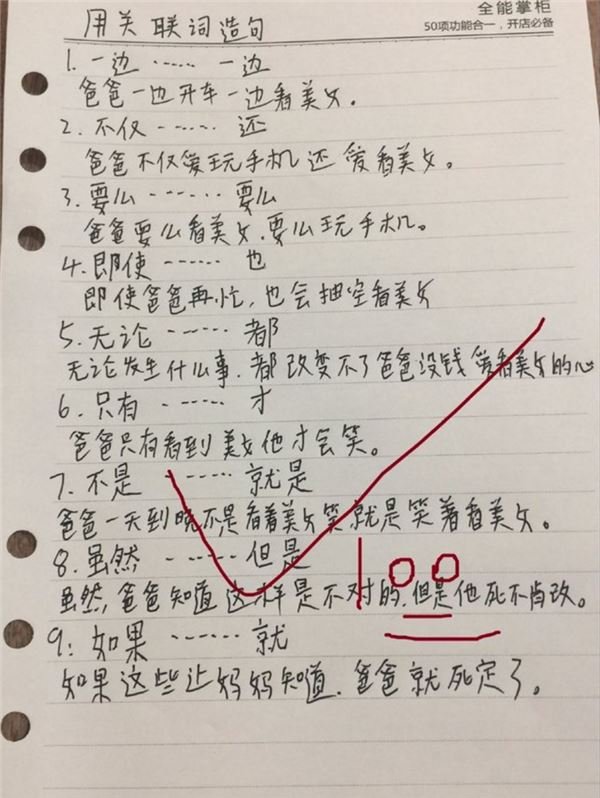 全能掌柜
50项功能合一,开店必备
用关联词造句
1. 一边 ...... 一边
爸爸一边开车一边看美女.
2. 不仅 ...... 还
爸爸不仅爱玩手机还爱看美女。
3. 要么 ...... 要么
爸爸要么看美女.要么玩手机。
4. 即使 ...... 也
即使爸爸再忙,也会抽空看美女
5. 无论 ...... 都
无论发生什么事.都改变不了爸爸没钱爱看美女的心
6. 只有 ...... 才
爸爸只有看到美女他才会笑。
7. 不是 ...... 就是
爸爸一天到晚不是看着美女笑就是笑着看美女。
8. 虽然 ...... 但是
虽然,爸爸知道这样是不对的.但是他死不肯改。
100
9: 如果 ...... 就
如果这些让妈妈知道.爸爸就死定了。